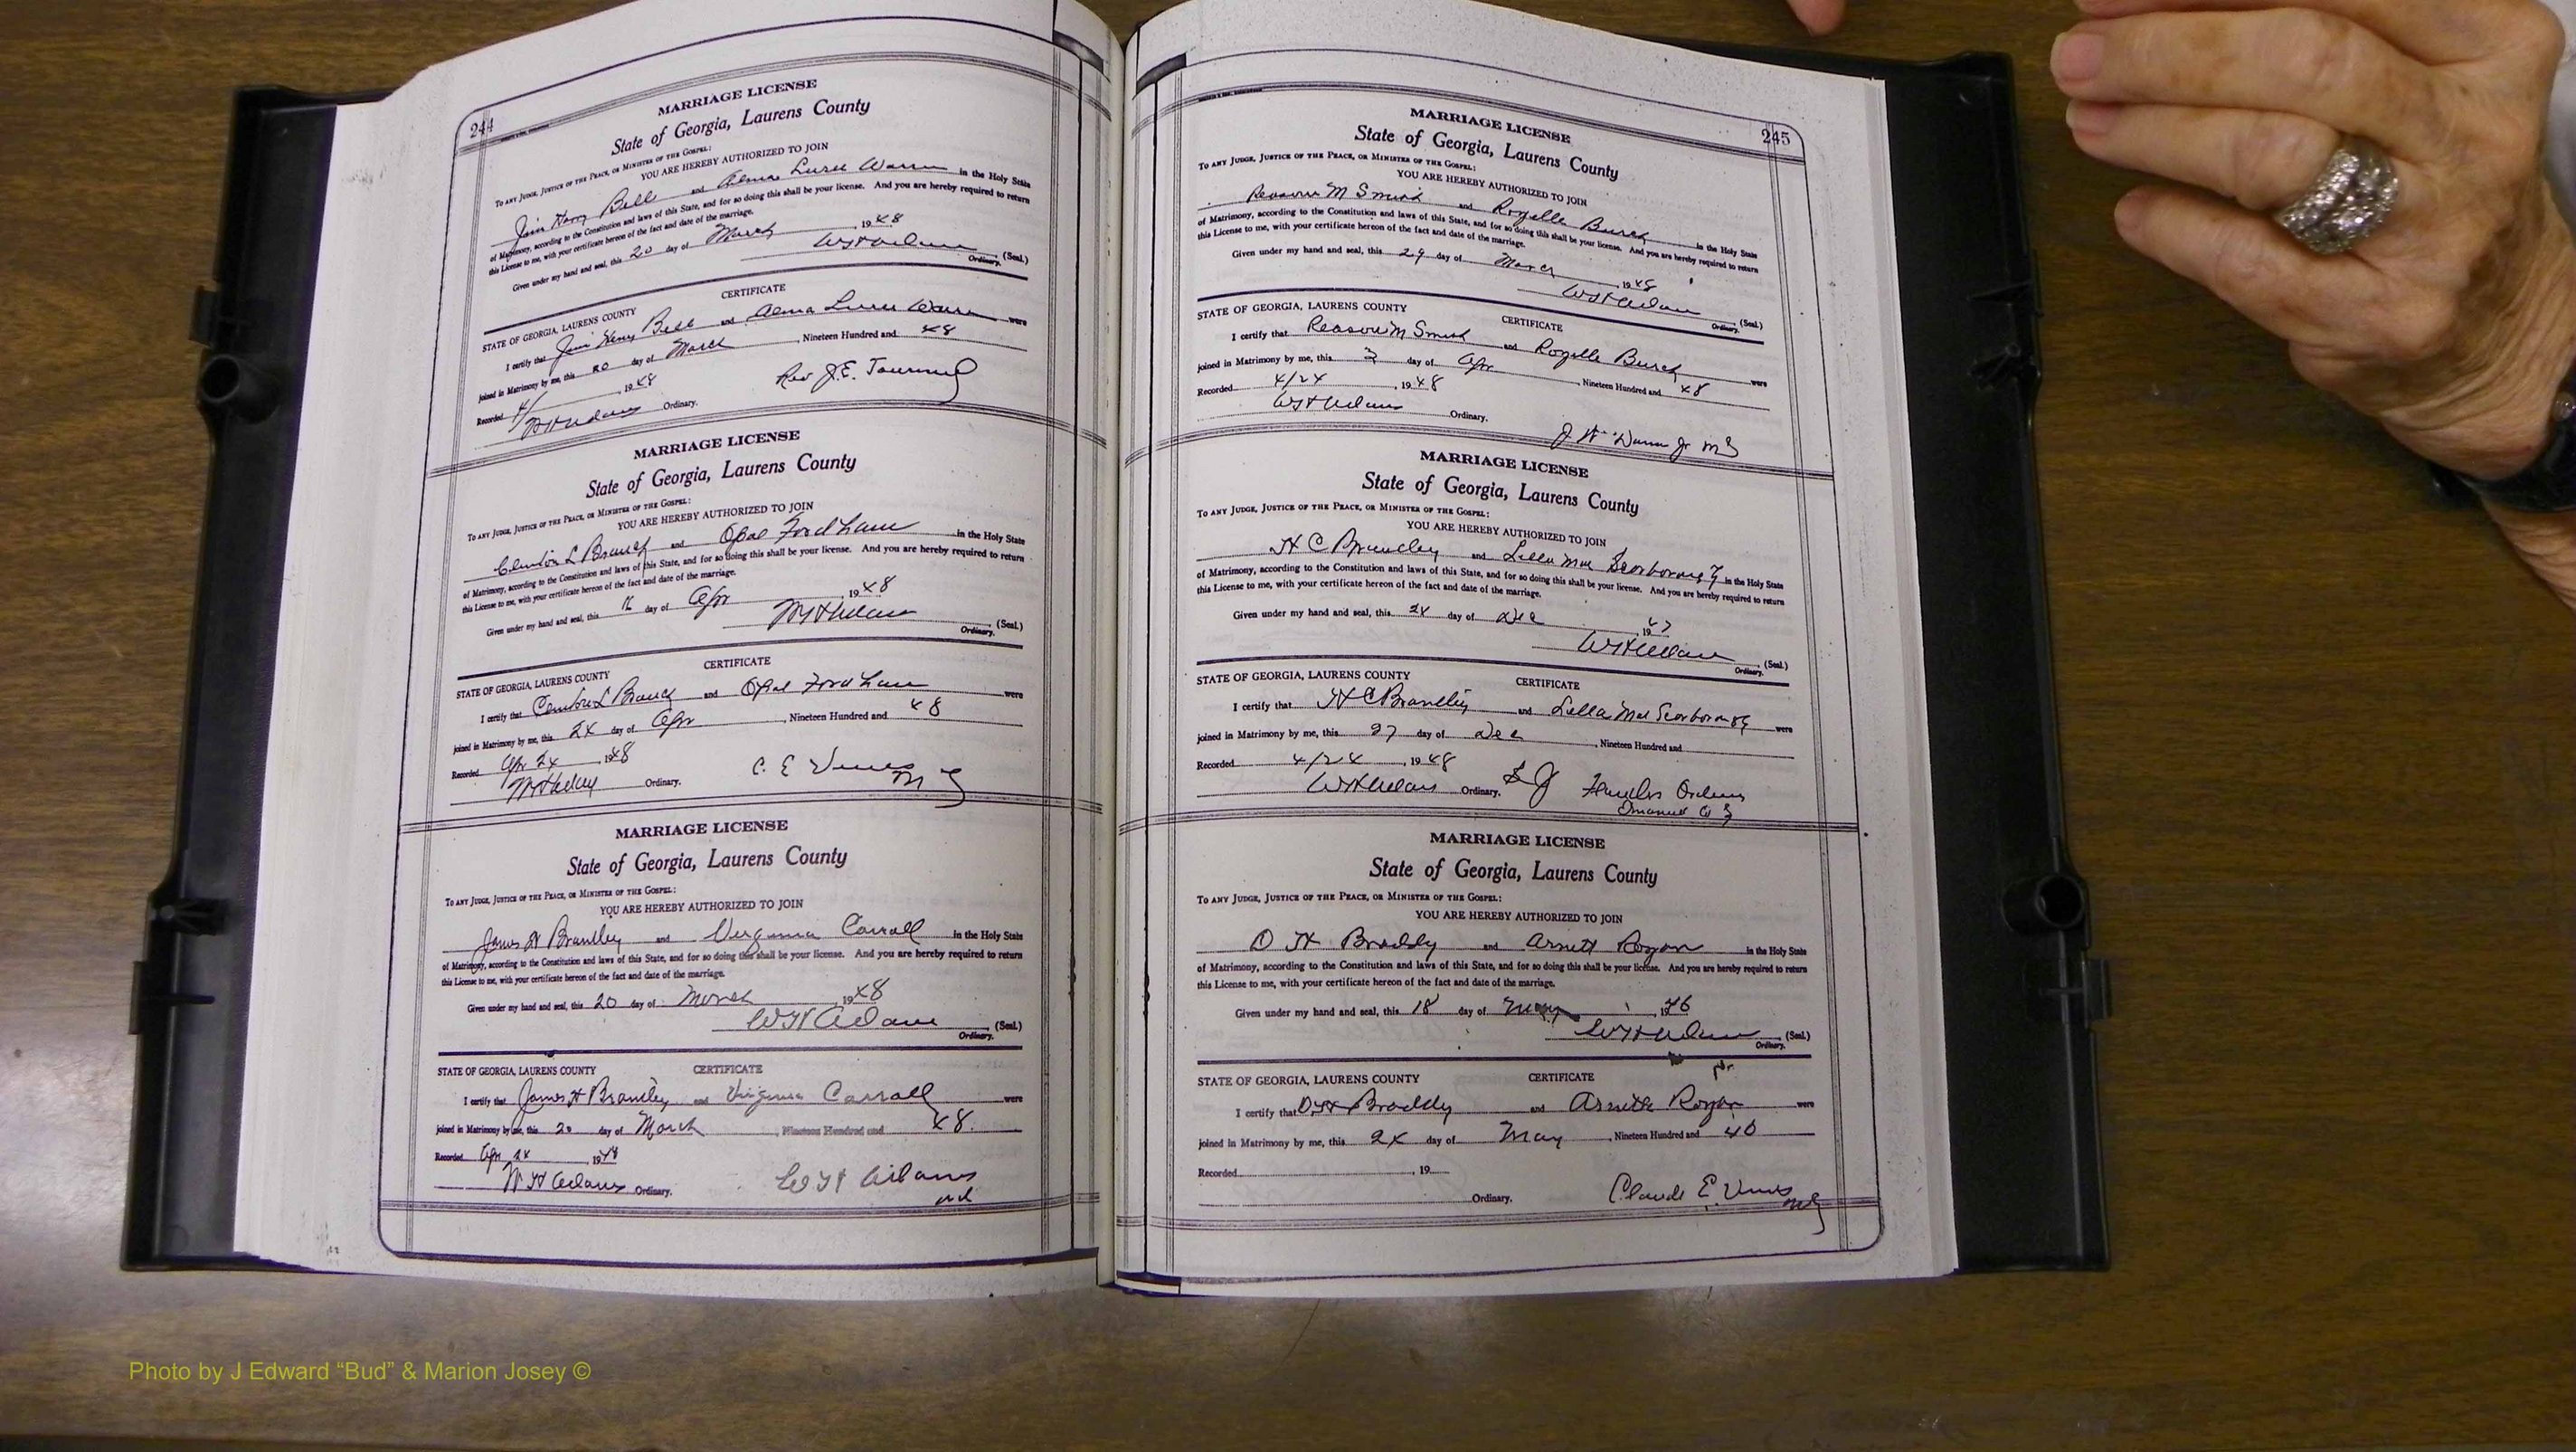 244
MARRIAGE LICENSE
State of Georgia, Laurens County
To any Judge, Justice of the Peace, or Minister of the Gospel:
YOU ARE HEREBY AUTHORIZED TO JOIN
Jim Henry Bell and Alma Luree Warren in the Holy State
of Matrimony, according to the Constitution and laws of this State, and for so doing this shall be your license. And you are hereby required to return
this License to me, with your certificate hereon of the fact and date of the marriage.
Given under my hand and seal, this 20 day of March, 1948
WH Adams (Seal.)
Ordinary.
CERTIFICATE
STATE OF GEORGIA, LAURENS COUNTY
I certify that Jim Henry Bell and Alma Luree Warren were
joined in Matrimony by me, this 20 day of March, Nineteen Hundred and 48
Recorded 4/ , 1948 Rev J.E.
WH Adams Ordinary.
MARRIAGE LICENSE
State of Georgia, Laurens County
To any Judge, Justice of the Peace, or Minister of the Gospel:
YOU ARE HEREBY AUTHORIZED TO JOIN
L Branch and Opal Fordham in the Holy State
of Matrimony, according to the Constitution and laws of this State, and for so doing this shall be your license. And you are hereby required to return
this License to me, with your certificate hereon of the fact and date of the marriage.
Given under my hand and seal, this 16 day of Apr, 1948
WH Adams (Seal.)
Ordinary.
CERTIFICATE
STATE OF GEORGIA, LAURENS COUNTY
I certify that L Branch and Opal Fordham were
joined in Matrimony by me, this 24 day of Apr, Nineteen Hundred and 48
Recorded Apr 24, 1948
WH Adams Ordinary. C. E Vines MG
MARRIAGE LICENSE
State of Georgia, Laurens County
To any Judge, Justice of the Peace, or Minister of the Gospel:
YOU ARE HEREBY AUTHORIZED TO JOIN
James H Brantley and Virginia Carroll in the Holy State
of Matrimony, according to the Constitution and laws of this State, and for so doing this shall be your license. And you are hereby required to return
this License to me, with your certificate hereon of the fact and date of the marriage.
Given under my hand and seal, this 20 day of March, 1948
WH Adams (Seal.)
Ordinary.
STATE OF GEORGIA, LAURENS COUNTY CERTIFICATE
I certify that James H Brantley and Virginia Carroll were
joined in Matrimony by me, this 20 day of March, Nineteen Hundred and 48.
Recorded Apr 24, 1948
WH Adams Ordinary. WH Adams
245
MARRIAGE LICENSE
State of Georgia, Laurens County
To any Judge, Justice of the Peace, or Minister of the Gospel:
YOU ARE HEREBY AUTHORIZED TO JOIN
Reason M Smith and Rozelle Burch in the Holy State
of Matrimony, according to the Constitution and laws of this State, and for so doing this shall be your license. And you are hereby required to return
this License to me, with your certificate hereon of the fact and date of the marriage.
Given under my hand and seal, this 29 day of March, 1948
WH Adams (Seal.)
Ordinary.
STATE OF GEORGIA, LAURENS COUNTY CERTIFICATE
I certify that Reason M Smith and Rozelle Burch were
joined in Matrimony by me, this 3 day of Apr, Nineteen Hundred and 48
Recorded 4/24, 1948
WH Adams Ordinary.
MG
MARRIAGE LICENSE
State of Georgia, Laurens County
To any Judge, Justice of the Peace, or Minister of the Gospel:
YOU ARE HEREBY AUTHORIZED TO JOIN
H C Brantley and Lella Mae Scarborough in the Holy State
of Matrimony, according to the Constitution and laws of this State, and for so doing this shall be your license. And you are hereby required to return
this License to me, with your certificate hereon of the fact and date of the marriage.
Given under my hand and seal, this 24 day of Dec, 1947
WH Adams (Seal.)
Ordinary.
STATE OF GEORGIA, LAURENS COUNTY CERTIFICATE
I certify that H C Brantley and Lella Mae Scarborough were
joined in Matrimony by me, this 27 day of Dec, Nineteen Hundred and
Recorded 4/24, 1948
WH Adams Ordinary.
Emanuel Co
MARRIAGE LICENSE
State of Georgia, Laurens County
To any Judge, Justice of the Peace, or Minister of the Gospel:
YOU ARE HEREBY AUTHORIZED TO JOIN
D H Braddy and Arnett Rozar in the Holy State
of Matrimony, according to the Constitution and laws of this State, and for so doing this shall be your license. And you are hereby required to return
this License to me, with your certificate hereon of the fact and date of the marriage.
Given under my hand and seal, this 18 day of May, 1946
WH Adams (Seal.)
Ordinary.
STATE OF GEORGIA, LAURENS COUNTY CERTIFICATE
I certify that D H Braddy and Arnett Rozar were
joined in Matrimony by me, this 24 day of May, Nineteen Hundred and
Recorded , 19
Ordinary. Claude E. Vines MG
Photo by J Edward “Bud” & Marion Josey ©